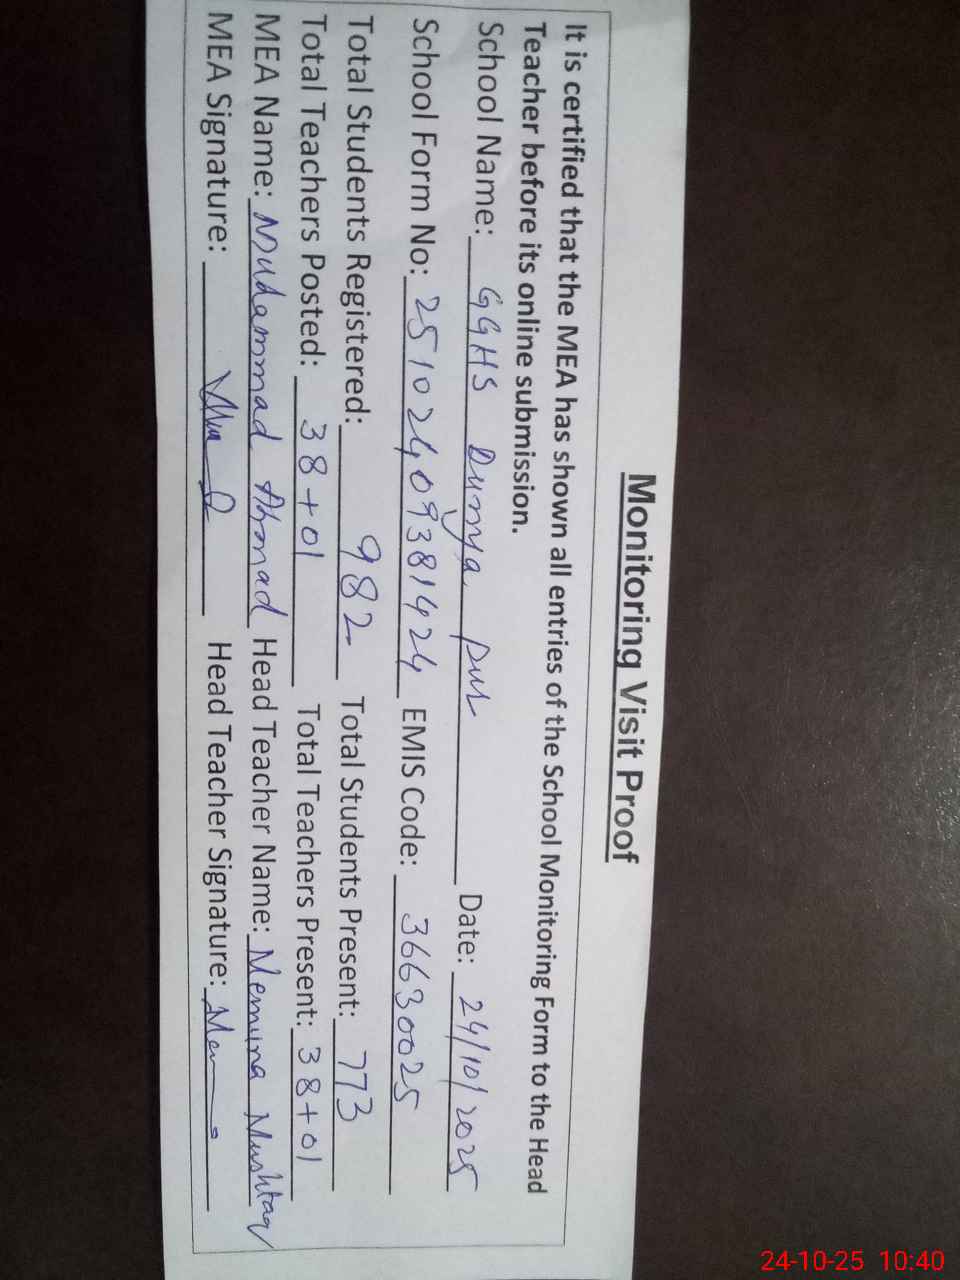 Monitoring Visit Proof
It is certified that the MEA has shown all entries of the School Monitoring Form to the Head
Teacher before its online submission.
School Name: GGHS Dunya pur Date: 24/10/2025
School Form No: 251024093814 24 EMIS Code: 36630025
Total Students Registered: 982 Total Students Present: 773
Total Teachers Posted: 38+01 Total Teachers Present: 38+01
MEA Name: Muhammad Ahmad Head Teacher Name: Memuna Mushtaq
MEA Signature: Head Teacher Signature:
24-10-25 10:40